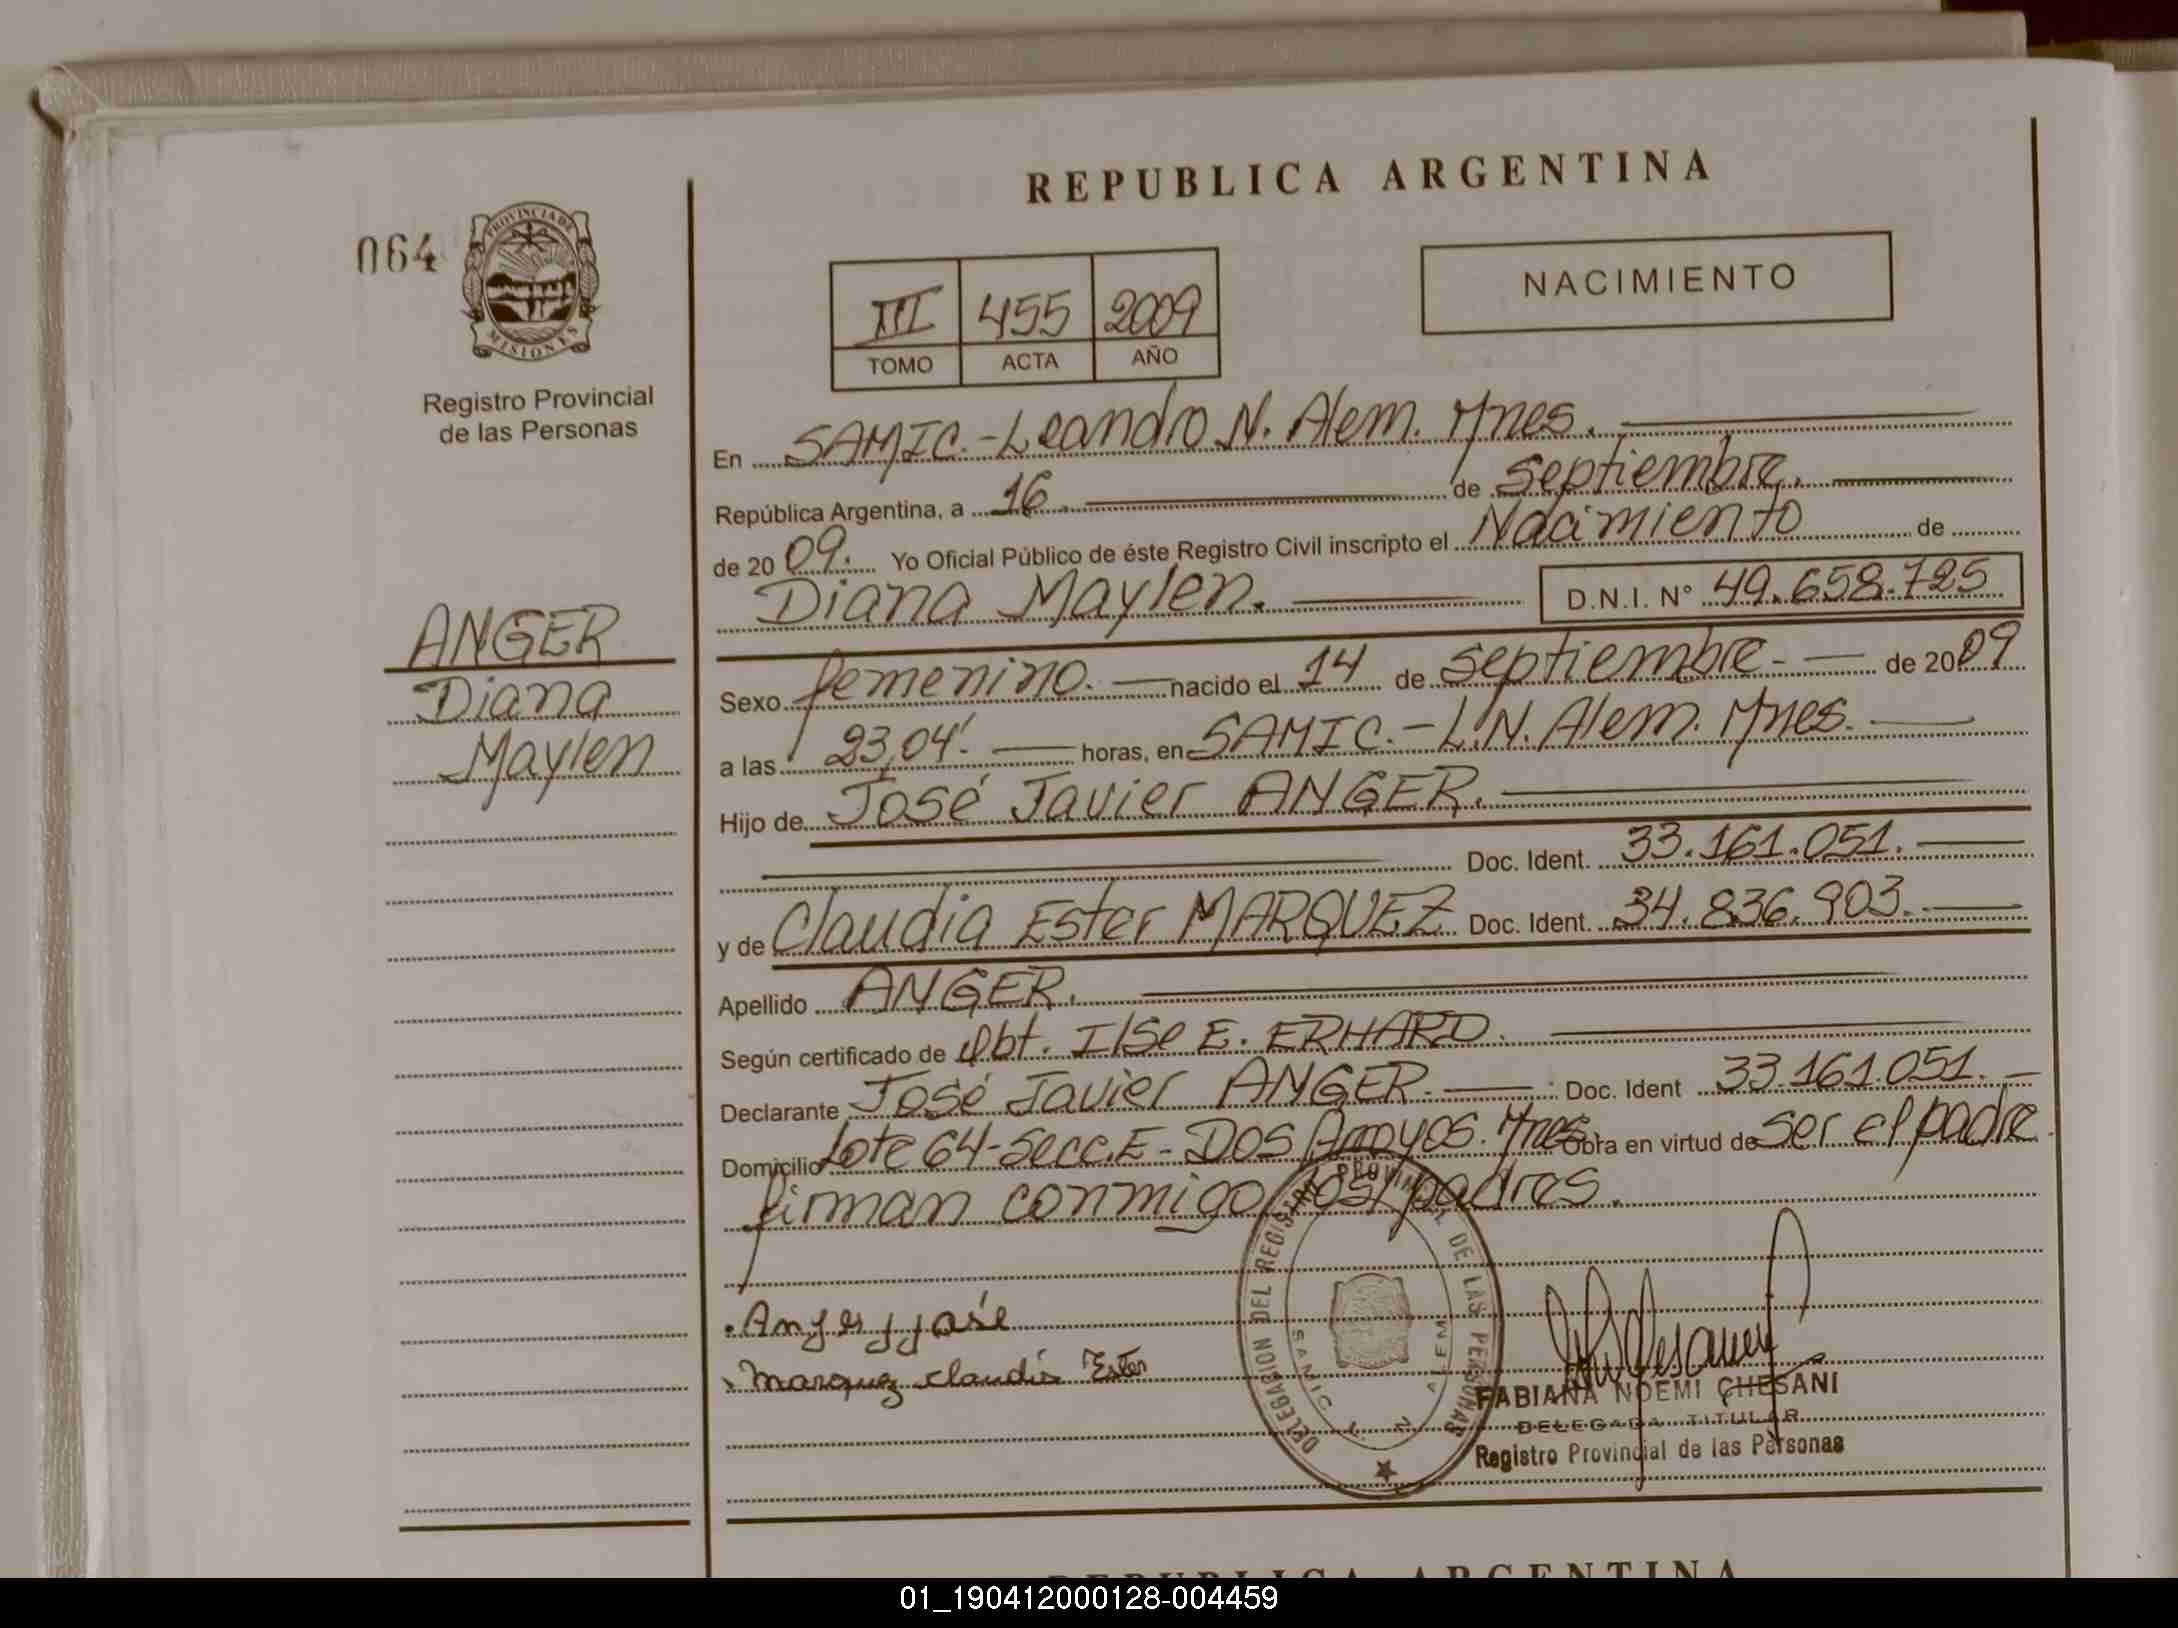 REPUBLICA ARGENTINA
064
PROVINCIA DE
MISIONES
Registro Provincial
de las Personas
III 455 2009
TOMO ACTA AÑO
NACIMIENTO
En SAMIC.-Leandro N. Alem. Mnes.
República Argentina, a 16. de septiembre.
de 2009. Yo Oficial Público de éste Registro Civil inscripto el Nacimiento de
Diana Maylen. D.N.I. N° 49.658.725
ANGER
Diana
Maylen
Sexo femenino. nacido el 14 de septiembre- de 2009
a las 23,04'. horas, en SAMIC.-L.N. Alem. Mnes.
Hijo de José Javier ANGER.
Doc. Ident. 33.161.051.
y de Claudia Ester MARQUEZ Doc. Ident. 34.836.903.
Apellido ANGER.
Según certificado de Obt. Ilse E. ERHARD.
Declarante José Javier ANGER.- Doc. Ident 33.161.051.
Domicilio Lote 64-Secc.E-DOS Arroyos. Mnes. Obra en virtud de ser el padre
firman conmigo los padres.
DELEGACION DEL REGISTRO PROVINCIAL DE LAS PERSONAS
SAMIC L. N. ALEM
Anger José
Marquez Claudia Ester
FABIANA NOEMI CHESANI
DELEGADA TITULAR
Registro Provincial de las Personas
REPUBLICA ARGENTINA
01_190412000128-004459